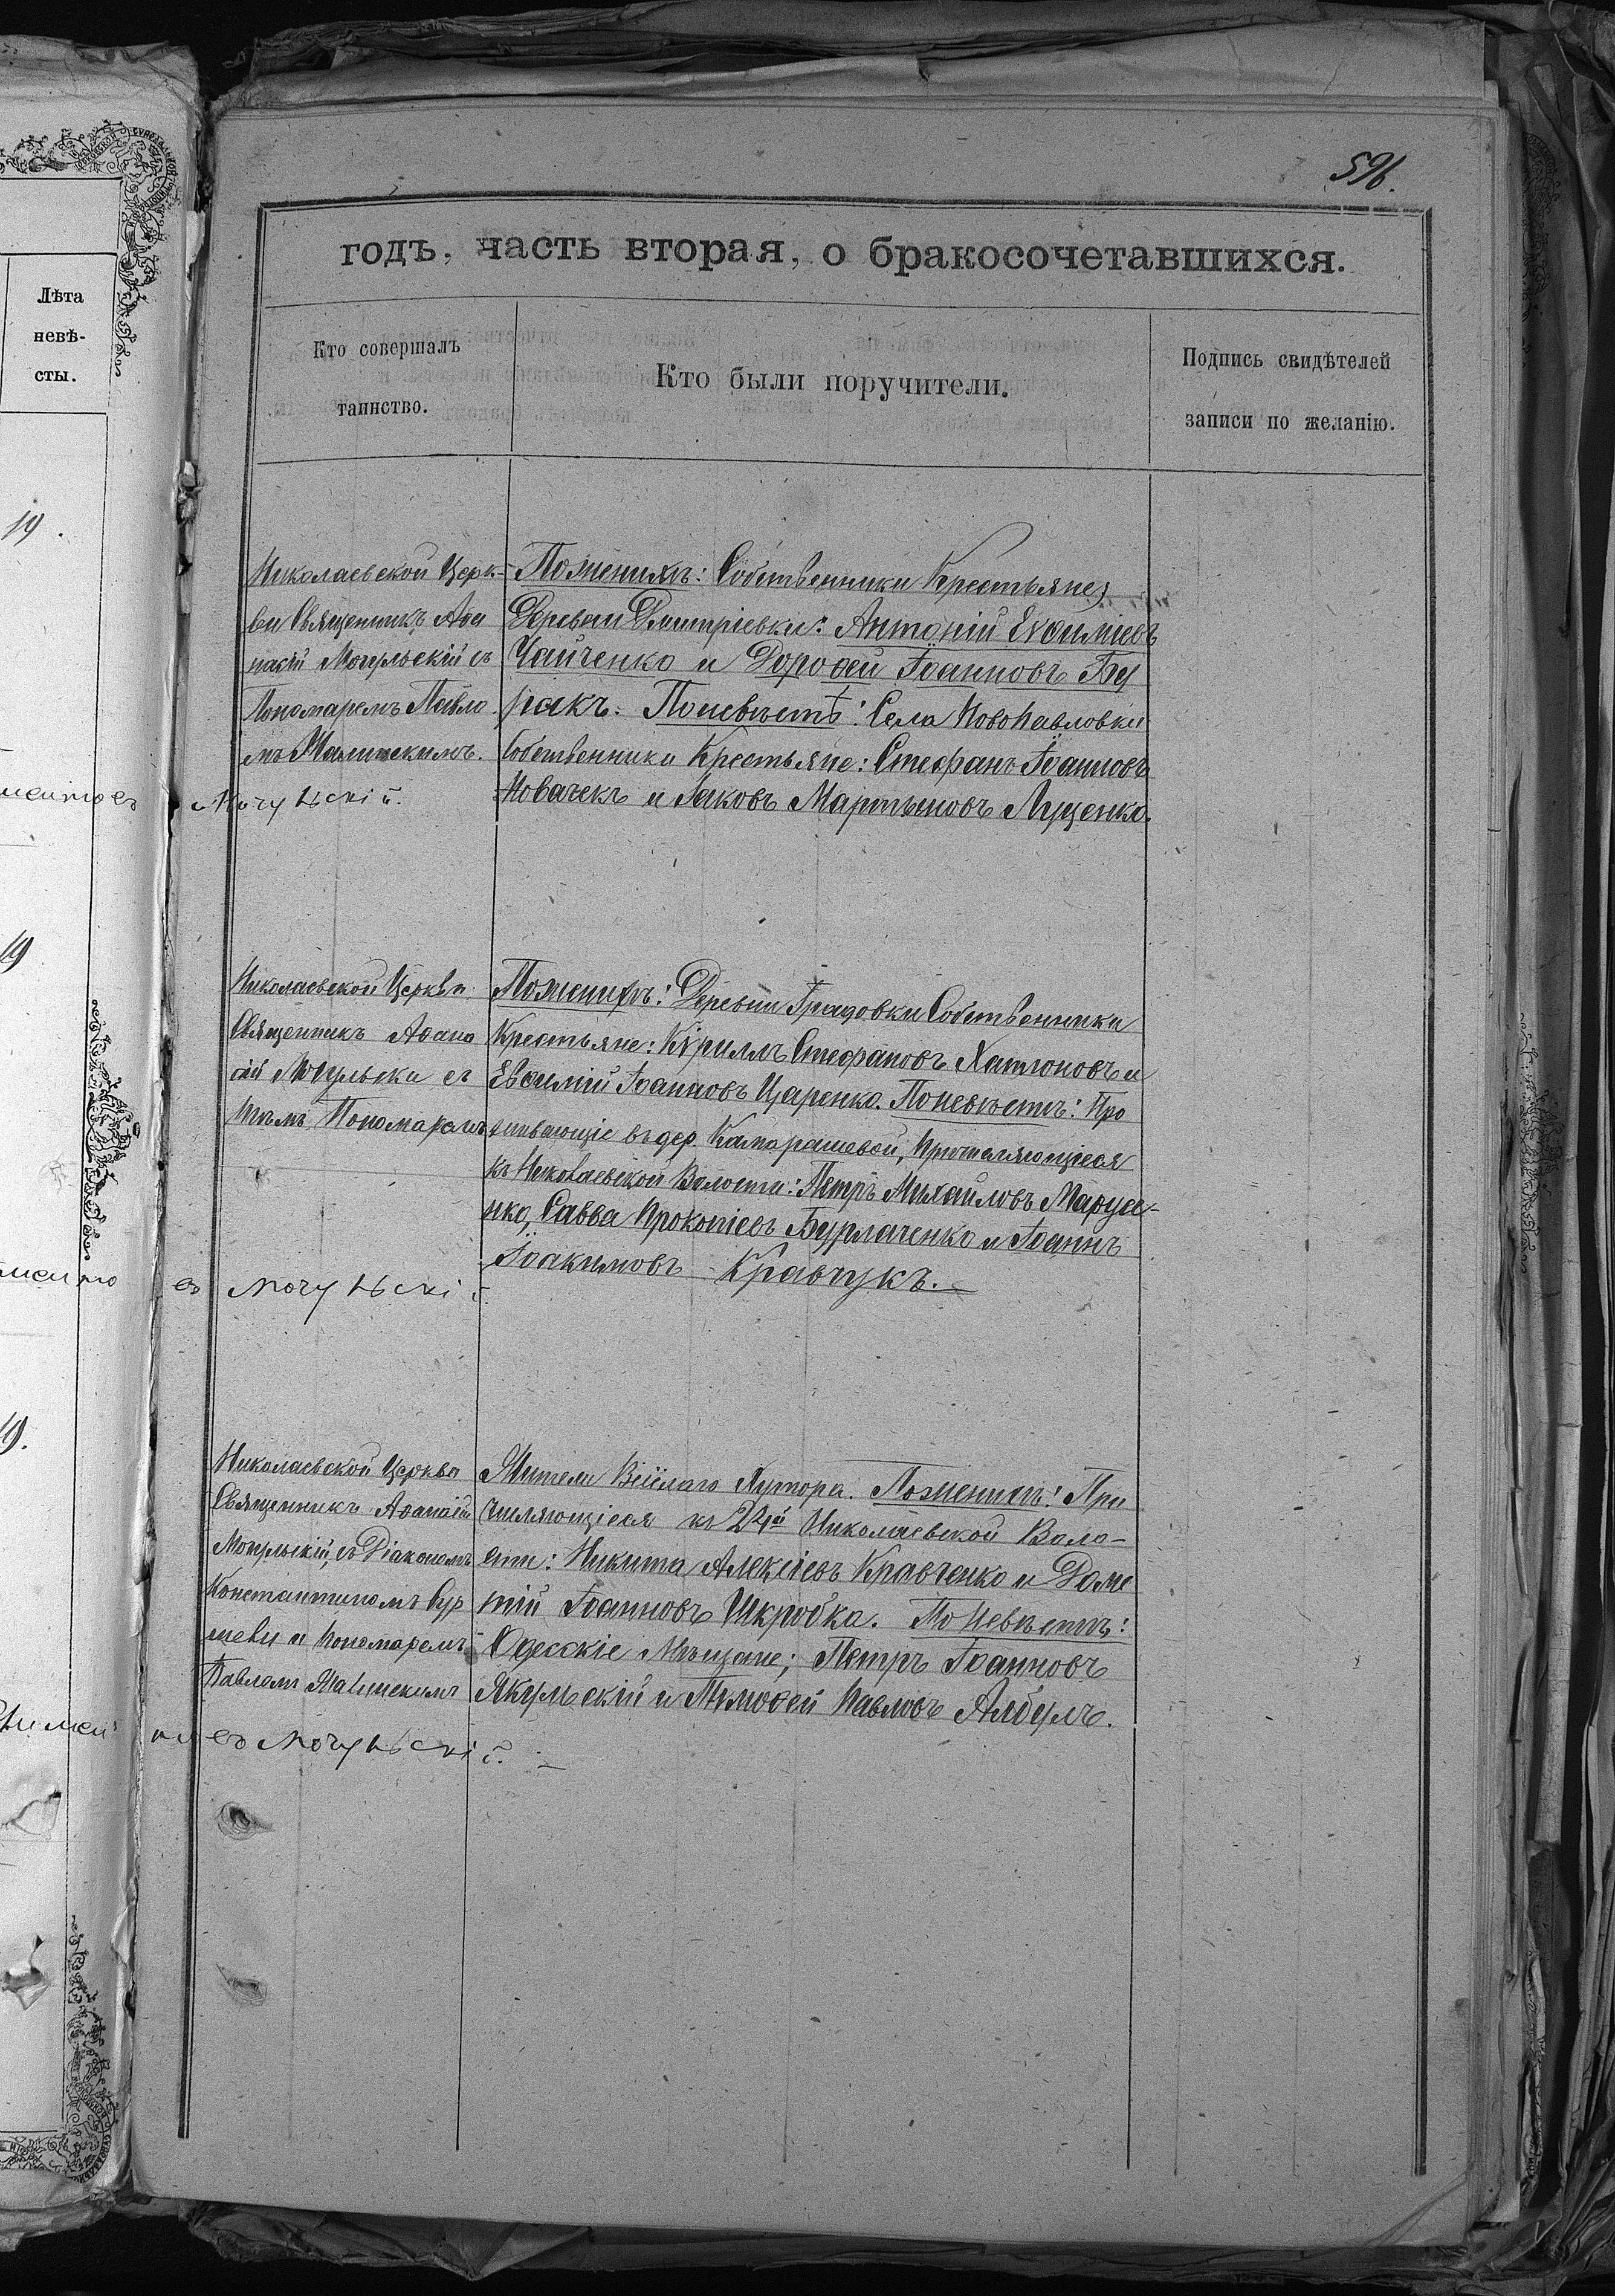 596.
годъ, часть вторая, о бракосочетавшихся.
Лѣта
невѣ-
сты.
Кто совершалъ
таинство.
Кто были поручители.
Подпись свидѣтелей
записи по желанію.
19.
Николаевской Церк-
ви Священникъ Аѳа
насій Могульскій съ
Пономаремъ Павло
мъ
Могульскій.
Поженихъ: Собственники Крестьяне,
Деревни Дмитріевки: Антоній Евѳиміевъ
Чайченко и Дороѳей Іоанновъ Бу
ракъ. Поневѣстѣ: Села Новопавловки
Собственники Крестьяне: Стефанъ Іоанновъ
Новачекъ и Іаковъ Мартыновъ Луценко.
19
Николаевской Церкви
Священникъ Аѳана
сій Могульски съ
тѣмъ Пономаремъ
въ Могульскі й
Поженихъ: Деревни Градовки Собственники
Крестьяне: Кѵриллъ Стефановъ Хатнововъ и
Евѳимій Іоанновъ Царенко. Поневѣстѣ: Про
живающіе въ дер. Камарашевой, Причисляющіеся
къ Николаевской Волости: Петръ Михаиловъ Марусе-
нко, Савва Прокопіевъ Бурлаченко и Іоаннъ
Іоакимовъ Кравчукъ.
19.
Николаевской Церкви
Священникъ Аѳанасій
Могульскій, съ Діакономъ
Константиномъ
и Пономаремъ
Павломъ
въ Могульскі й.
Жители Весёлаго Хутора. Поженихъ: При
числяющіеся къ 2й Николаевской Воло-
сти: Никита Алексіевъ Кравченко и Доме
тій Іоанновъ Шкробка. По Невѣстѣ:
Одесскіе Мѣщане; Петръ Іоанновъ
Якульскій и Тимоѳей Павловъ Албулъ.